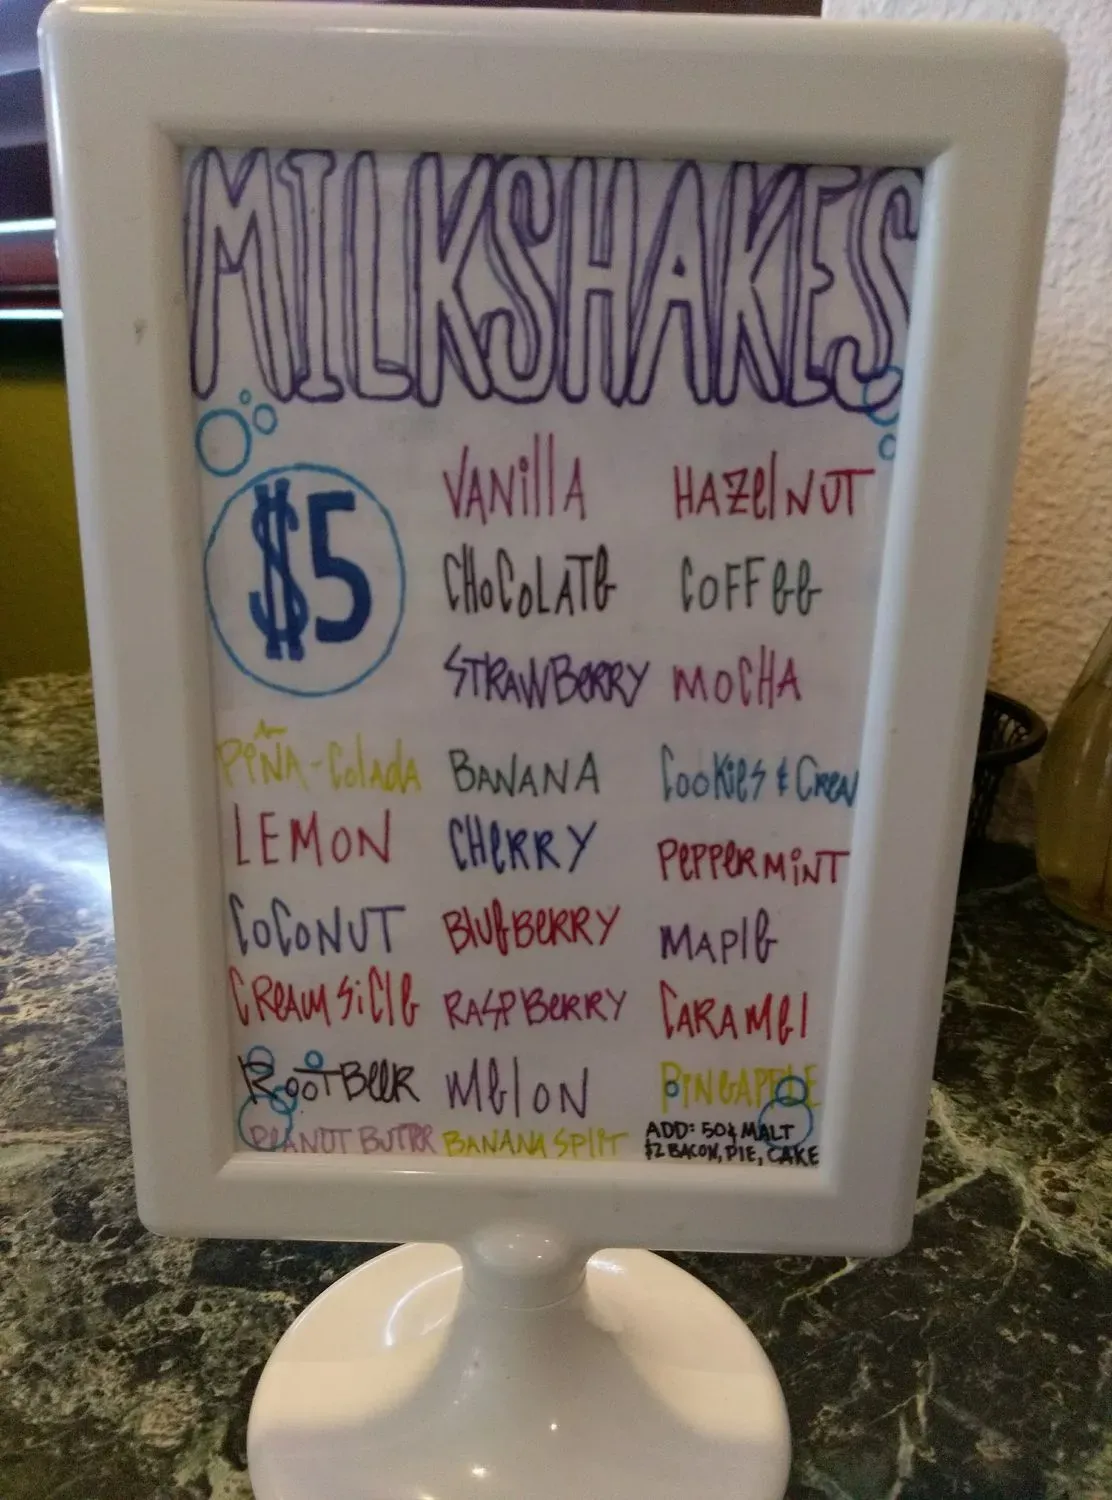 MILKSHAKES
$5
PIÑA-COLADA
LEMON
COCONUT
CREAMSICLE
ROOTBEER
PEANUT BUTTER
VANILLA
CHOCOLATE
STRAWBERRY
BANANA
CHERRY
BLUEBERRY
RASPBERRY
MELON
BANANA SPLIT
HAZELNUT
COFFEE
MOCHA
COOKIES & CREAM
PEPPERMINT
MAPLE
CARAMEL
PINEAPPLE
ADD: 50¢ MALT
$2 BACON, PIE, CAKE